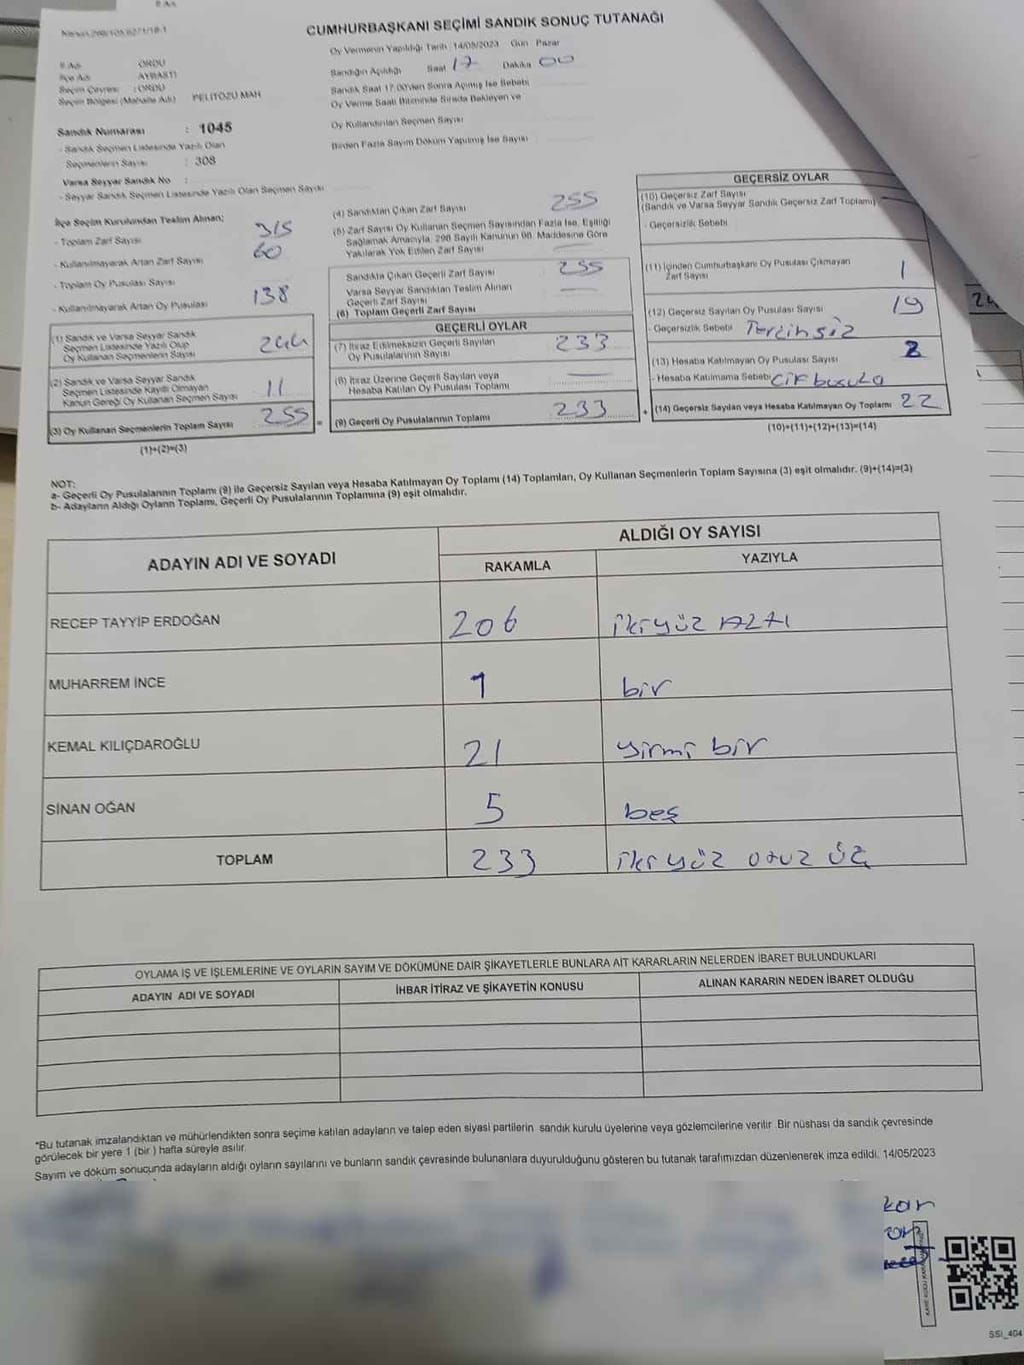 CUMHURBAŞKANI SEÇİMİ SANDIK SONUÇ TUTANAĞI
Oy Vermenin Yapıldığı Tarih 14/05/2023 Gün Pazar
Sandığın Açıldığı Saat 17 Dakika 00
Sandık Saat 17.00'den Sonra Açılmış İse Sebebi
Oy Verme Saati Bitiminde Sırada Bekleyen ve
Oy Kullandırılan Seçmen Sayısı
Birden Fazla Sayım Döküm Yapılmış İse Sayısı
İl Adı : ORDU
İlçe Adı AYBASTI
Seçim Çevresi : ORDU
Seçim Bölgesi (Mahalle Adı) PELİTÖZÜ MAH
Sandık Numarası : 1045
- Sandık Seçmen Listesinde Yazılı Olan
Seçmenlerin Sayısı : 308
Varsa Seyyar Sandık No :
- Seyyar Sandık Seçmen Listesinde Yazılı Olan Seçmen Sayısı
İlçe Seçim Kurulundan Teslim Alınan;
- Toplam Zarf Sayısı 315
- Kullanılmayarak Artan Zarf Sayısı 60
- Toplam Oy Pusulası Sayısı
- Kullanılmayarak Artan Oy Pusulası 138
(1) Sandık ve Varsa Seyyar Sandık
Seçmen Listesinde Yazılı Olup
Oy Kullanan Seçmenlerin Sayısı 244
(2) Sandık ve Varsa Seyyar Sandık
Seçmen Listesinde Kayıtlı Olmayan
Kanun Gereği Oy Kullanan Seçmen Sayısı 11
(3) Oy Kullanan Seçmenlerin Toplam Sayısı 255 =
(1)+(2)=(3)
(4) Sandıktan Çıkan Zarf Sayısı 255
(5) Zarf Sayısı Oy Kullanan Seçmen Sayısından Fazla İse, Eşitliği
Sağlamak Amacıyla, 298 Sayılı Kanunun 98. Maddesine Göre
Yakılarak Yok Edilen Zarf Sayısı
Sandıkta Çıkan Geçerli Zarf Sayısı 255
Varsa Seyyar Sandıktan Teslim Alınan
Geçerli Zarf Sayısı
(6) Toplam Geçerli Zarf Sayısı
GEÇERLİ OYLAR
(7) İtiraz Edilmeksizin Geçerli Sayılan
Oy Pusulalarının Sayısı 233
(8) İtiraz Üzerine Geçerli Sayılan veya
Hesaba Katılan Oy Pusulası Toplamı
(9) Geçerli Oy Pusulalarının Toplamı 233 +
GEÇERSİZ OYLAR
(10) Geçersiz Zarf Sayısı
(Sandık ve Varsa Seyyar Sandık Geçersiz Zarf Toplamı)
- Geçersizlik Sebebi
(11) İçinden Cumhurbaşkanı Oy Pusulası Çıkmayan
Zarf Sayısı 1
(12) Geçersiz Sayılan Oy Pusulası Sayısı 19
- Geçersizlik Sebebi Tercihsiz
(13) Hesaba Katılmayan Oy Pusulası Sayısı 2
- Hesaba Katılmama Sebebi Çift busula
(14) Geçersiz Sayılan veya Hesaba Katılmayan Oy Toplamı 22
(10)+(11)+(12)+(13)=(14)
NOT:
a- Geçerli Oy Pusulalarının Toplamı (9) ile Geçersiz Sayılan veya Hesaba Katılmayan Oy Toplamı (14) Toplamları, Oy Kullanan Seçmenlerin Toplam Sayısına (3) eşit olmalıdır. (9)+(14)=(3)
b- Adayların Aldığı Oyların Toplamı, Geçerli Oy Pusulalarının Toplamına (9) eşit olmalıdır.
ADAYIN ADI VE SOYADI ALDIĞI OY SAYISI
RAKAMLA YAZIYLA
RECEP TAYYİP ERDOĞAN 206 ikiyüz ALTI
MUHARREM İNCE 1 bir
KEMAL KILIÇDAROĞLU 21 yirmi bir
SİNAN OĞAN 5 beş
TOPLAM 233 ikiyüz otuz üç
OYLAMA İŞ VE İŞLEMLERİNE VE OYLARIN SAYIM VE DÖKÜMÜNE DAİR ŞİKAYETLERLE BUNLARA AİT KARARLARIN NELERDEN İBARET BULUNDUKLARI
ADAYIN ADI VE SOYADI İHBAR İTİRAZ VE ŞİKAYETİN KONUSU ALINAN KARARIN NEDEN İBARET OLDUĞU
*Bu tutanak imzalandıktan ve mühürlendikten sonra seçime katılan adayların ve talep eden siyasi partilerin sandık kurulu üyelerine veya gözlemcilerine verilir. Bir nüshası da sandık çevresinde
görülecek bir yere 1 (bir) hafta süreyle asılır.
Sayım ve döküm sonucunda adayların aldığı oyların sayılarını ve bunların sandık çevresinde bulunanlara duyurulduğunu gösteren bu tutanak tarafımızdan düzenlenerek imza edildi. 14/05/2023
SSİ_404